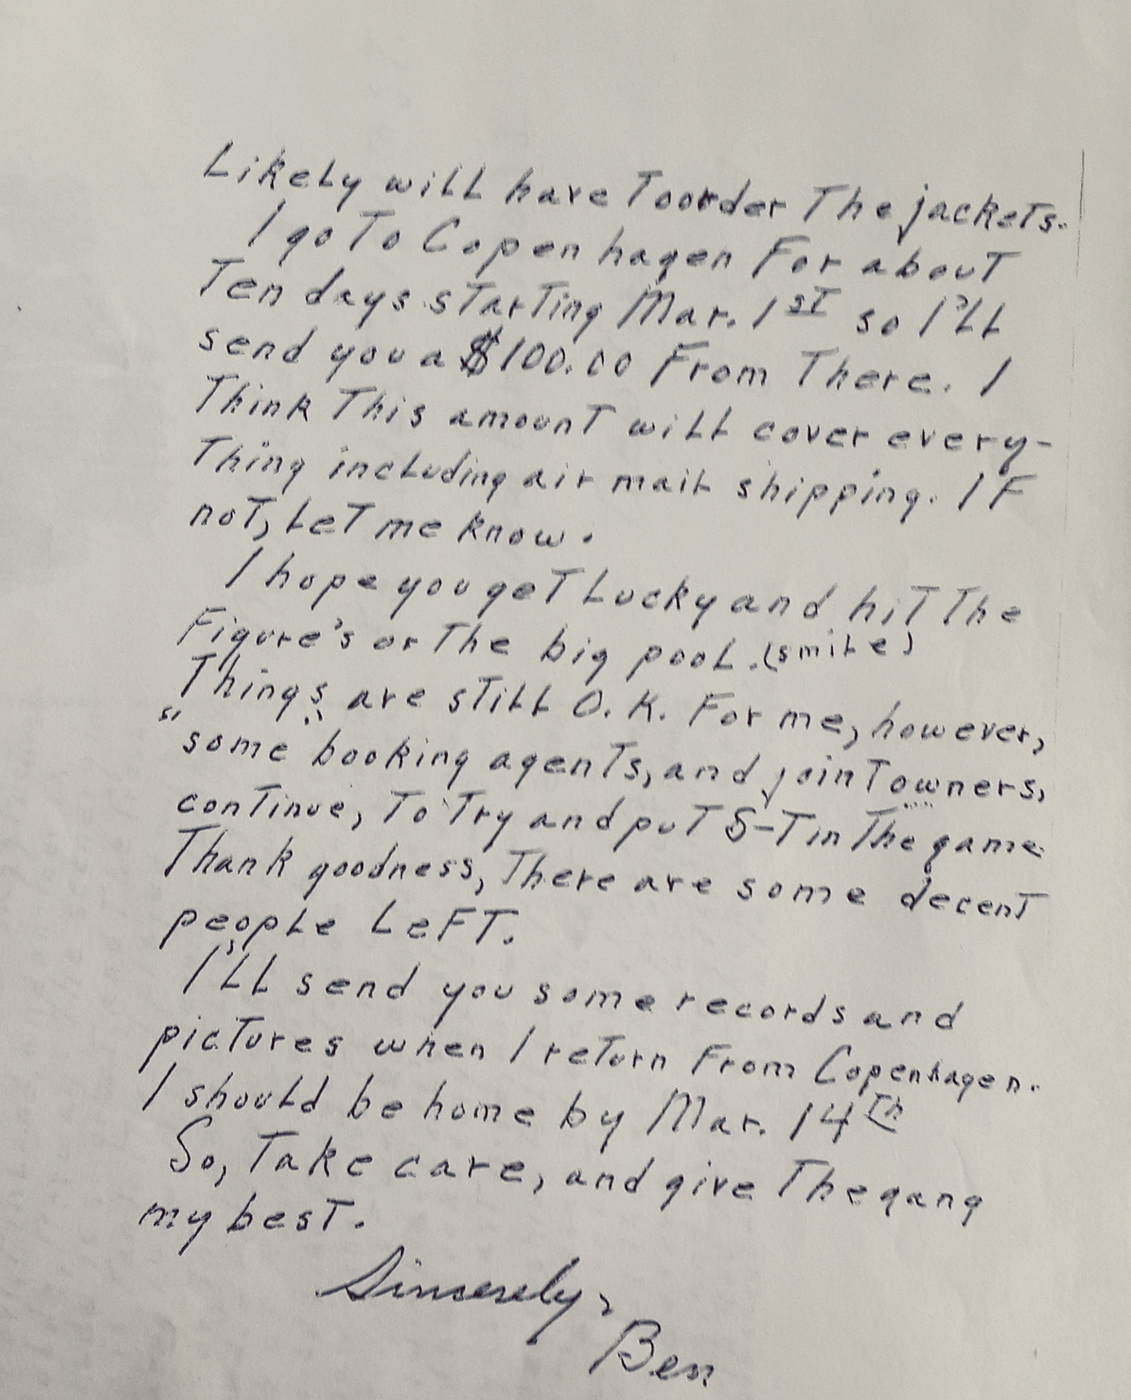 Likely will have to order The jackets.
I go To Copenhagen For about
Ten days starting Mar. 1st so I'll
send you a $100.00 From There. I
Think This amount will cover every-
Thing including air mail shipping. IF
noT, LeT me know.
I hope you geT Lucky and hiT The
Figure's or The big pool. (smile)
Things are sTill O.K. For me, however,
"some" booking agenTs, and joinT owners,
conTinue, To Try and puT S-T in The game.
Thank goodness, There are some decenT
people LeFT.
I'll send you some records and
picTures when I reTurn From Copenhagen.
I should be home by Mar. 14Th
So, Take care, and give The gang
my besT.
Sincerely,
Ben